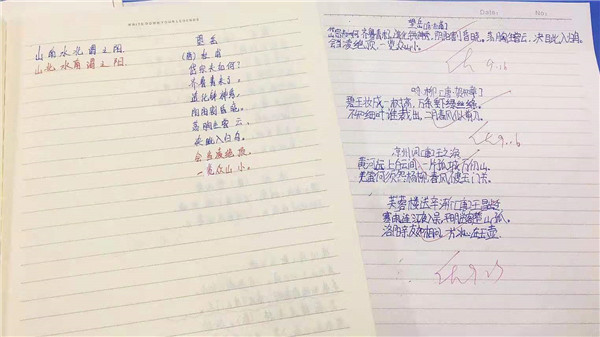 山南水北谓之阳.
山北水南谓之阴.
望岳
(唐) 杜甫
岱宗夫如何?
齐鲁青未了。
造化钟神秀,
阴阳割昏晓。
荡胸生层云,
决眦入归鸟。
会当凌绝顶,
一览众山小。
Date: No:
望岳
岱宗夫如何,齐鲁青未了,造化钟神秀,阴阳割昏晓。荡胸生层云,决眦入归鸟。
会当凌绝顶,一览众山小。
9.16
咏柳 [唐·贺知章]
碧玉妆成一树高,万条垂下绿丝绦。
不知细叶谁裁出,二月春风似剪刀。
9.16
凉州词 [唐]王之涣
黄河远上白云间,一片孤城万仞山。
羌笛何须怨杨柳,春风不度玉门关。
芙蓉楼送辛渐 [唐]王昌龄
寒雨连江夜入吴,平明送客楚山孤。
洛阳亲友如相问,一片冰心在玉壶。